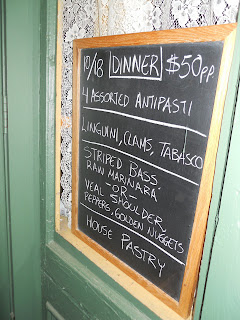 10/18 DINNER $50pp.
4 ASSORTED ANTIPASTI
LINGUINI, CLAMS, TABASCO
STRIPED BASS,
RAW MARINARA
-OR-
VEAL SHOULDER,
PEPPERS, GOLDEN NUGGETS
HOUSE PASTRY